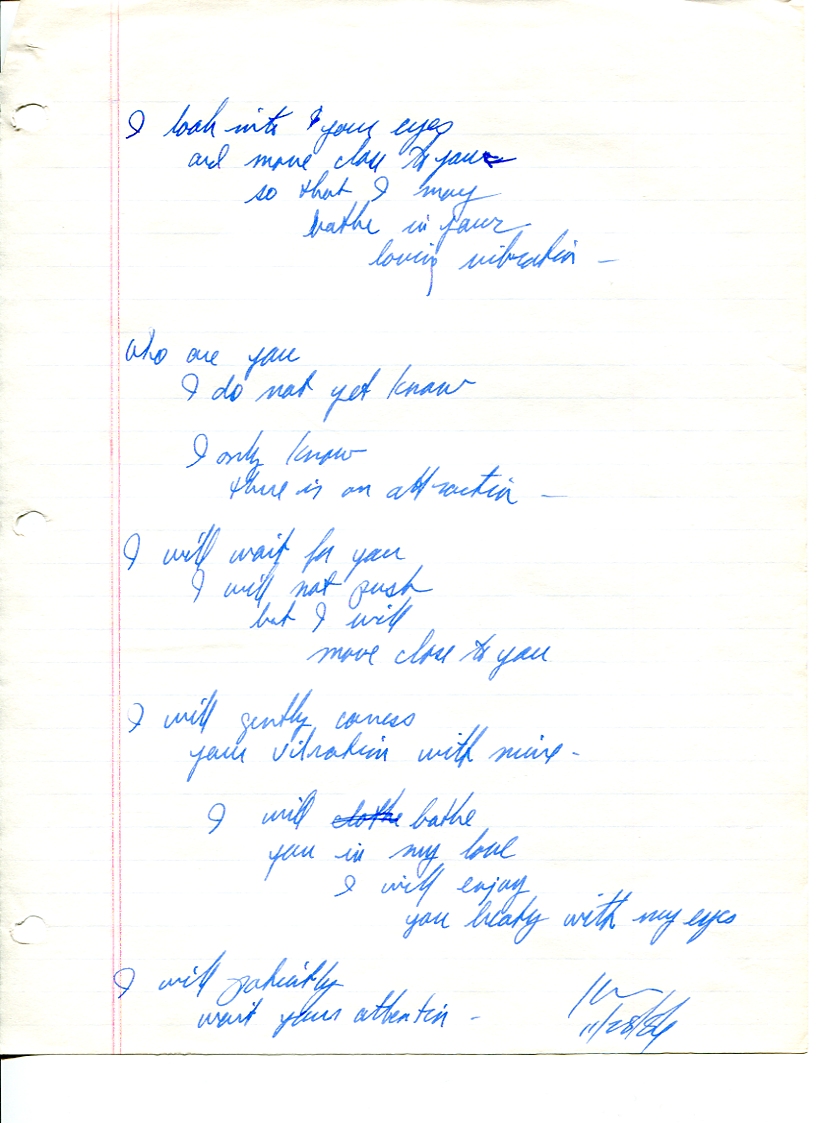 I look into your eyes
and move close to you
so that I may
bathe in your
loving vibration –
who are you
I do not yet know
I only know
there is an attraction –
I will wait for you
I will not push
but I will
move close to you
I will gently caress
your vibration with mine -
I will clothe bathe
you in my love
I will enjoy
you beauty with my eyes
I will patiently
wait your attention -
11/28/84